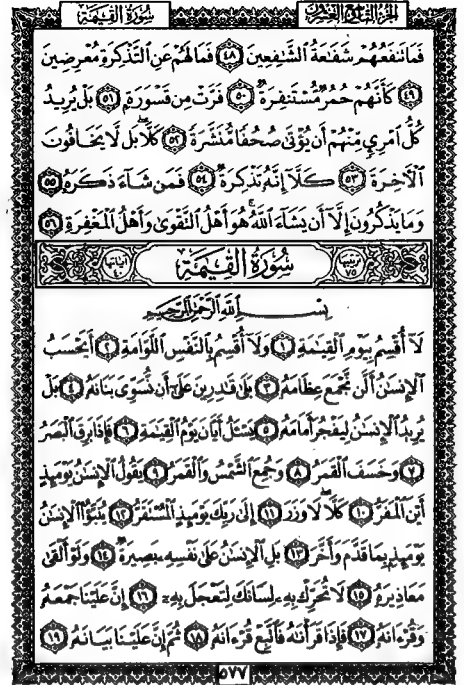 سُورَةُ القِيَامَةِ الجزء التاسع والعشرون
فَمَا تَنفَعُهُمْ شَفَٰعَةُ ٱلشَّٰفِعِينَ ٤٨ فَمَا لَهُمْ عَنِ ٱلتَّذْكِرَةِ مُعْرِضِينَ
٤٩ كَأَنَّهُمْ حُمُرٌ مُّسْتَنفِرَةٌ ٥٠ فَرَّتْ مِن قَسْوَرَةٍۭ ٥١ بَلْ يُرِيدُ
كُلُّ ٱمْرِئٍ مِّنْهُمْ أَن يُؤْتَىٰ صُحُفًا مُّنَشَّرَةً ٥٢ كَلَّا ۖ بَل لَّا يَخَافُونَ
ٱلْأَخِرَةَ ٥٣ كَلَّآ إِنَّهُۥ تَذْكِرَةٌ ٥٤ فَمَن شَآءَ ذَكَرَهُۥ ٥٥
وَمَا يَذْكُرُونَ إِلَّآ أَن يَشَآءَ ٱللَّهُ ۚ هُوَ أَهْلُ ٱلتَّقْوَىٰ وَأَهْلُ ٱلْمَغْفِرَةِ ٥٦
ترتيبها ٧٥ سُورَةُ القِيَٰمَةِ آياتها ٤٠
بِسْمِ ٱللَّهِ ٱلرَّحْمَٰنِ ٱلرَّحِيمِ
لَآ أُقْسِمُ بِيَوْمِ ٱلْقِيَٰمَةِ ١ وَلَآ أُقْسِمُ بِٱلنَّفْسِ ٱللَّوَّامَةِ ٢ أَيَحْسَبُ
ٱلْإِنسَٰنُ أَلَّن نَّجْمَعَ عِظَامَهُۥ ٣ بَلَىٰ قَٰدِرِينَ عَلَىٰٓ أَن نُّسَوِّىَ بَنَانَهُۥ ٤ بَلْ
يُرِيدُ ٱلْإِنسَٰنُ لِيَفْجُرَ أَمَامَهُۥ ٥ يَسْـَٔلُ أَيَّانَ يَوْمُ ٱلْقِيَٰمَةِ ٦ فَإِذَا بَرِقَ ٱلْبَصَرُ
٧ وَخَسَفَ ٱلْقَمَرُ ٨ وَجُمِعَ ٱلشَّمْسُ وَٱلْقَمَرُ ٩ يَقُولُ ٱلْإِنسَٰنُ يَوْمَئِذٍ
أَيْنَ ٱلْمَفَرُّ ١٠ كَلَّا لَا وَزَرَ ١١ إِلَىٰ رَبِّكَ يَوْمَئِذٍ ٱلْمُسْتَقَرُّ ١٢ يُنَبَّؤُا۟ ٱلْإِنسَٰنُ
يَوْمَئِذٍۭ بِمَا قَدَّمَ وَأَخَّرَ ١٣ بَلِ ٱلْإِنسَٰنُ عَلَىٰ نَفْسِهِۦ بَصِيرَةٌ ١٤ وَلَوْ أَلْقَىٰ
مَعَاذِيرَهُۥ ١٥ لَا تُحَرِّكْ بِهِۦ لِسَانَكَ لِتَعْجَلَ بِهِۦٓ ١٦ إِنَّ عَلَيْنَا جَمْعَهُۥ
وَقُرْءَانَهُۥ ١٧ فَإِذَا قَرَأْنَٰهُ فَٱتَّبِعْ قُرْءَانَهُۥ ١٨ ثُمَّ إِنَّ عَلَيْنَا بَيَانَهُۥ ١٩
٥٧٧